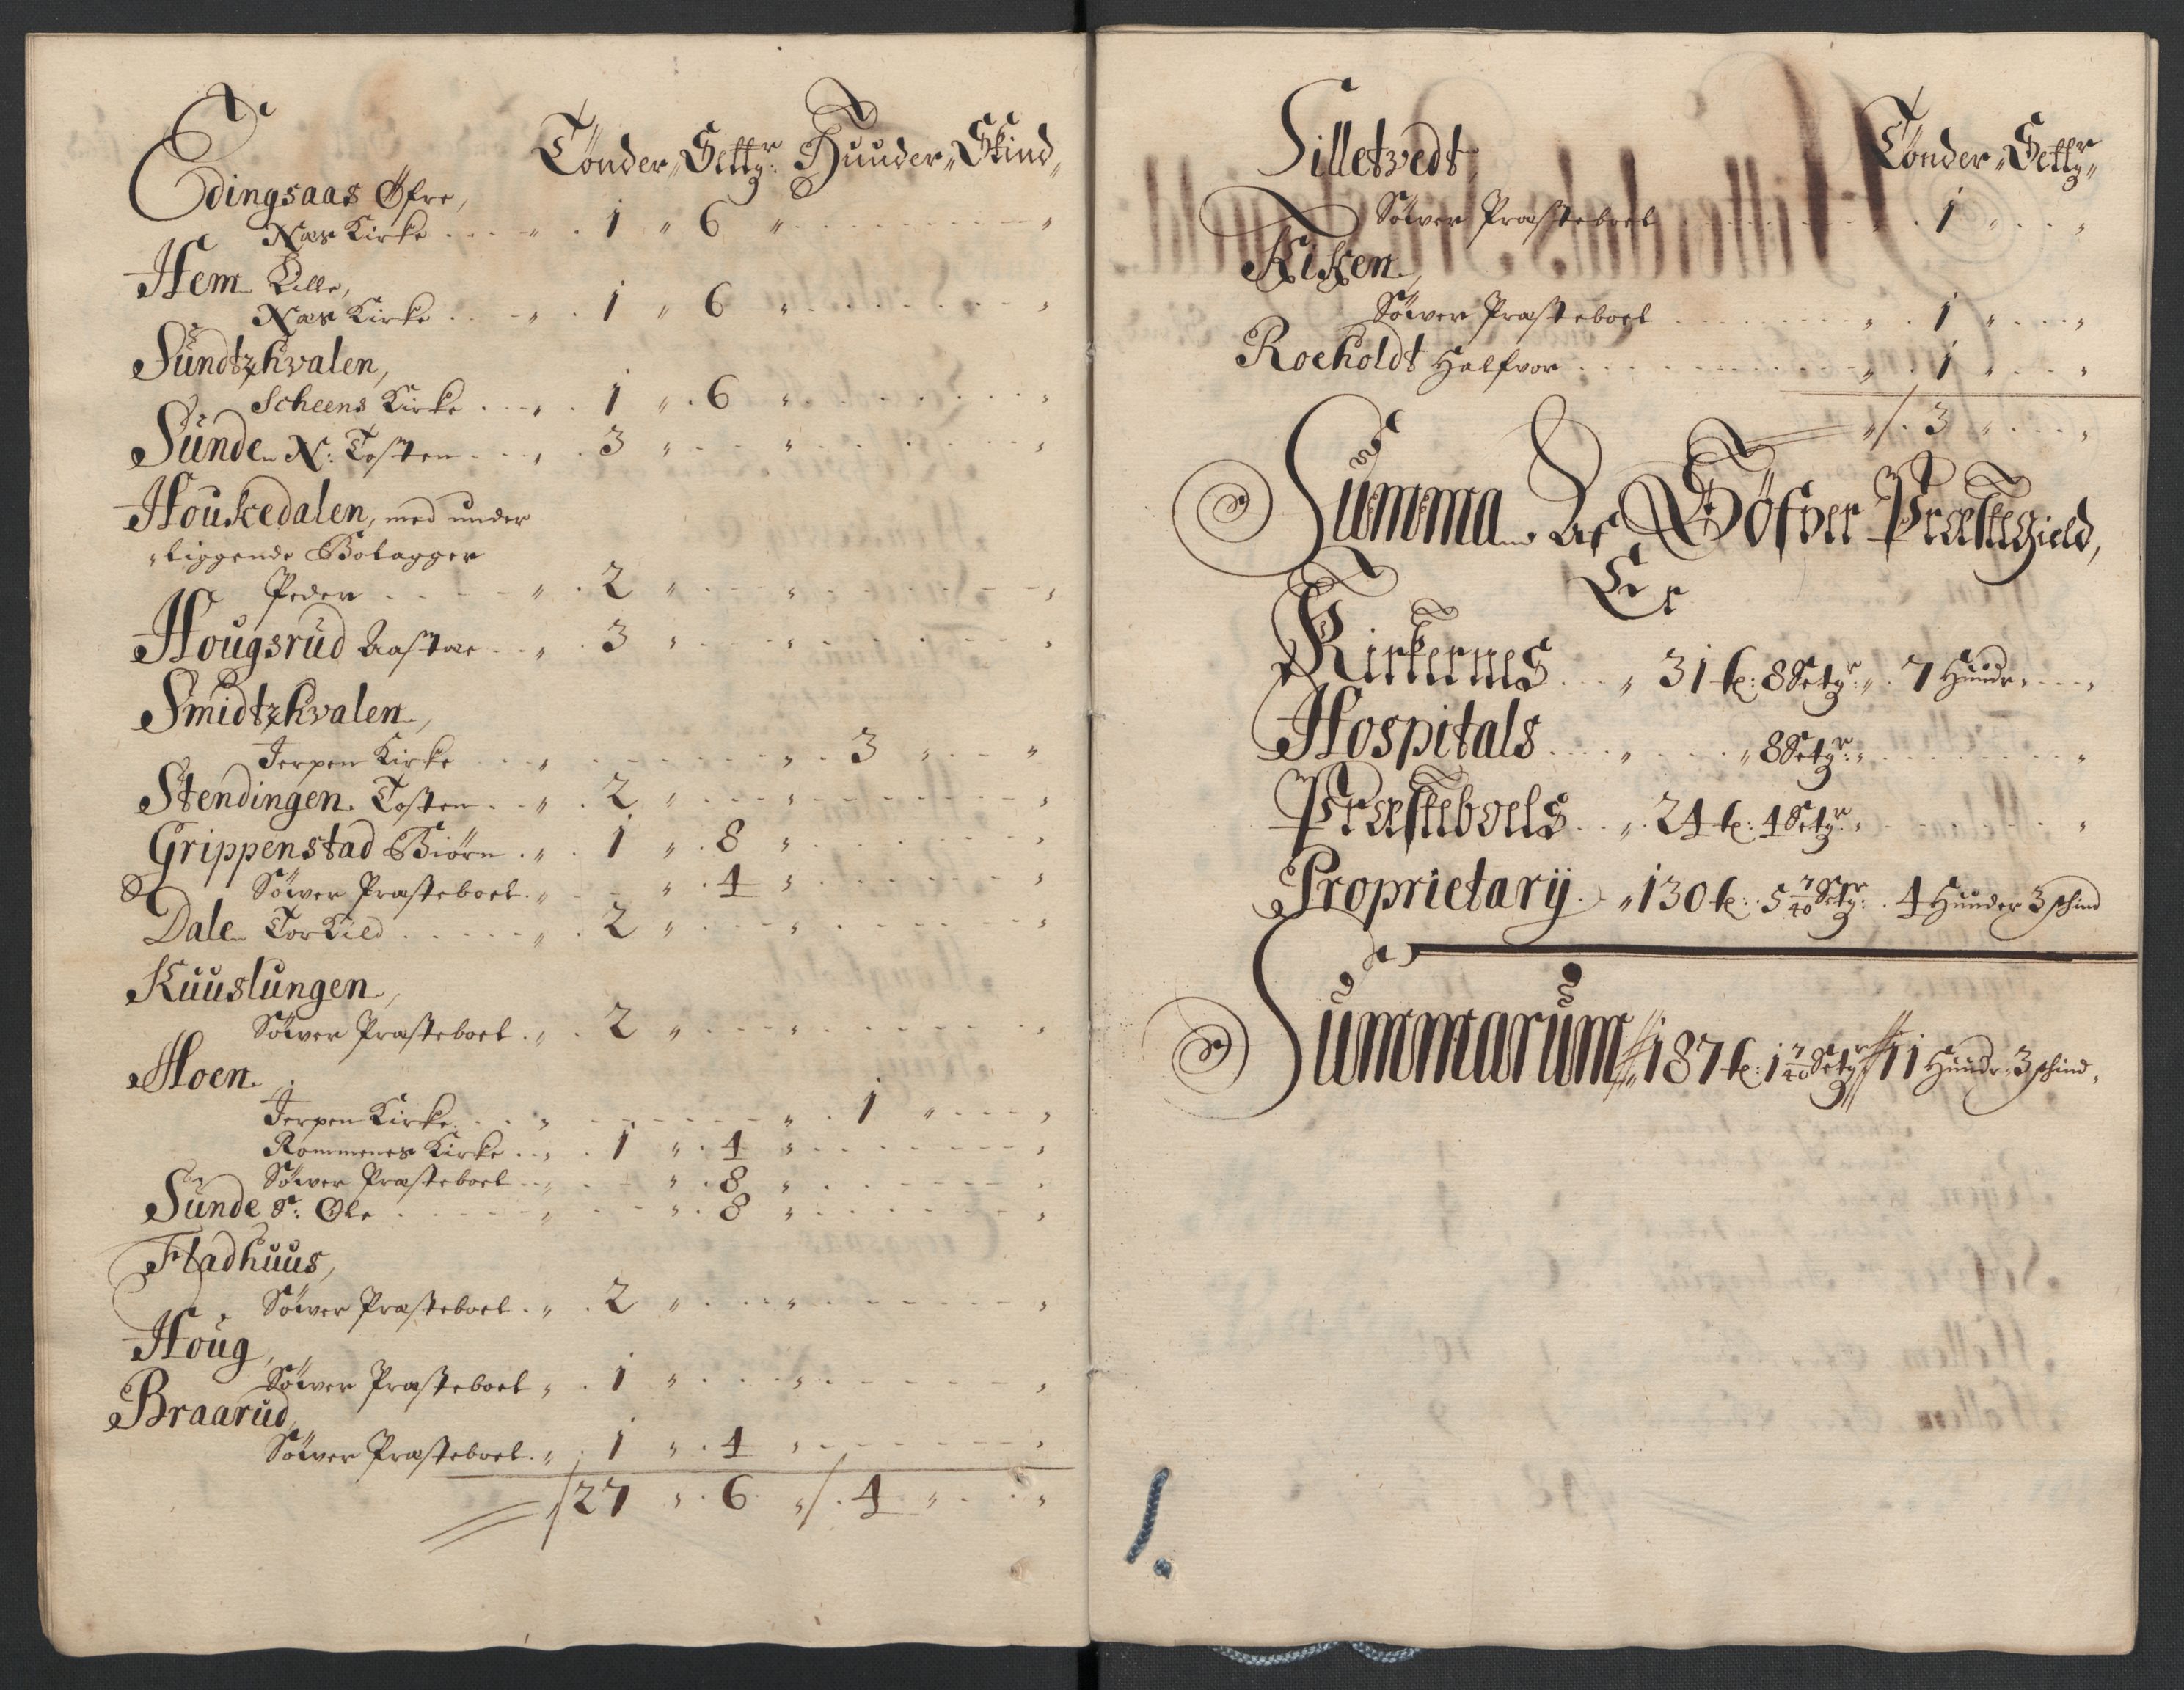 Tönder, Settgr: Huuder, Skind,
Edingsaas Øfre,
Næs Kirke . . . . „ . 1 „ 6 „ . . . . „
Hem Lille,
Næs Kirke . . . „ . 1 „ 6 „ . . . . „
Sündtzhvalen,
Scheens Kirke . . . „ . 1 „ . 6 „ . . . . „
Sünde N: Tosten . . . „ . 3 „ . . „ . . . . „
Houskedalen, med under
„liggende Bolagger
Peder . . . . „ . 2 „ . . „ . . . . „
Hougsrud Aastae . . „ . 3 „ . . „ . . . . „
Smidtzhvalen,
Jerpen Kirke . . „ . . . . „ . 3 „ . . „
Stendingen Tosten . . „ . 2 „ . . „ . . . . „
Grippenstad Biörn . „ . 1 „ . 8 „ . . . . „
Söwer Præsteboel . „ . . „ . 4 „ . . . . „
Dale Torkild . . . . „ . 2 „ . . „ . . . . „
Kuuslungen,
Söwer Præsteboel . „ . 2 „ . . „ . . . . „
Hoen
Jerpen Kirke . . . „ . . . . „ . 1 „ . . „
Rommenes Kirke . . „ . 1 „ . 4 „ . . . . „
Söwer Præsteboel . . „ . . „ . 8 „ . . . . „
Sünde S: Ole . . . . „ . . „ . 8 „ . . . . „
Fladhuus,
Söwer Præsteboel . „ . 2 „ . . „ . . . . „
Houg,
Söwer Præsteboel „ . 1 „ . . „ . . . . „
Braarud,
Söwer Præsteboel . „ . 1 „ . 4 „ . . . . „
27 „ . 6 „ . 4 „ . . „
Tönder „ Settgr „
Silletvedt,
Söwer Præsteboel . . . . . 1 „ . . „
Kiken,
Söwer Præsteboel . . . . „ . 1 „ . . „
Rocholdt Halfvor . . . . „ . 1 „ . . „
„ . 3 „ . . „
Summa Af Söfver Præstegield,
Er
Kirkernes . . „ 31 t: 8 Setgr: „ . 7 Hundr „ . . „
Hospitals . . . „ . . „ 8 Setgr: „ . . . . „
Præsteboels . . „ . 24 t: 4 Setgr „ . . . . „
Proprietarÿ . „ 130 t: 5 7/40 Setgr: . 4 Hunder 3 schind
Summarum „ 187 t: 1 7/40 Setgr 11 Hundr: 3 schind „